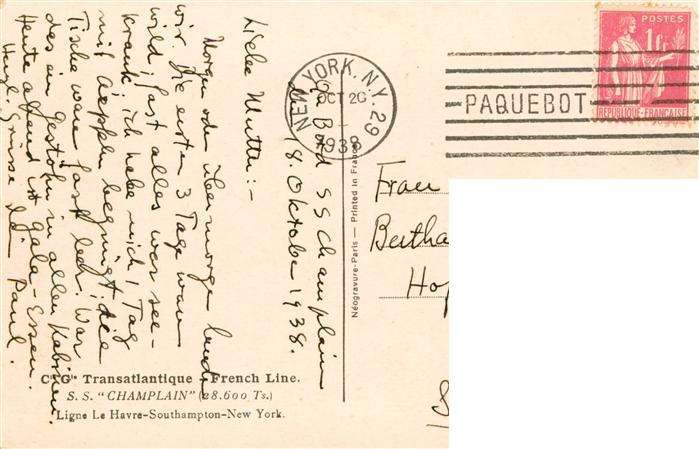 An Bord SS Champlain
18. Oktober 1938.
Liebe Mutti:-
Morgen oder übermorgen landen
wir. Die ersten 3 Tage waren
wild, fast alles war see-
krank, ich habe mich 1 Tag
mit Aepfeln begnügt; die
Tische waren fast leer. War
das ein Gestöhn in allen Kabinen.
Heute abend ist Gala-Essen.
Herzl. Grüsse Dein Paul.
C<sup>ie</sup> G<sup>le</sup> Transatlantique - French Line.
S. S. "CHAMPLAIN" (28.600 Ts.)
Ligne Le Havre-Southampton-New York.
Néogravure-Paris — Printed in France
NEW YORK, N.Y. 29
OCT 20
1938
PAQUEBOT
POSTES
1F
REPUBLIQUE FRANÇAISE
Frau
Bertha